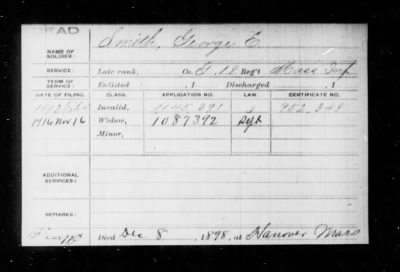 DEAD
NAME OF SOLDIER: Smith, George E.
SERVICE: Late rank, Co. G, 18 Reg't Mass Inf
TERM OF SERVICE: Enlisted , 1 Discharged , 1
DATE OF FILING. CLASS. APPLICATION NO. LAW. CERTIFICATE NO.
Invalid, 1145,391 952,348
1916 Nov 16 Widow, 1087392
Minor,
ADDITIONAL SERVICES:
REMARKS:
Died Dec 8, 1898, at Hanover Mass